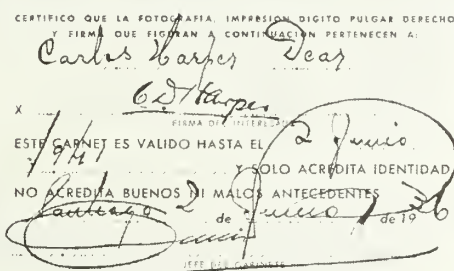 CERTIFICO QUE LA FOTOGRAFIA, IMPRESION DIGITO PULGAR DERECHO
Y FIRMA QUE FIGURAN A CONTINUACION PERTENECEN A:
Carlos Harper Dear
X C D Harper
FIRMA DEL INTERESADO
ESTE CARNET ES VALIDO HASTA EL 2 Junio
1941 Y SOLO ACREDITA IDENTIDAD
NO ACREDITA BUENOS NI MALOS ANTECEDENTES
Santiago 2 de Junio de 1936
JEFE DEL GABINETE